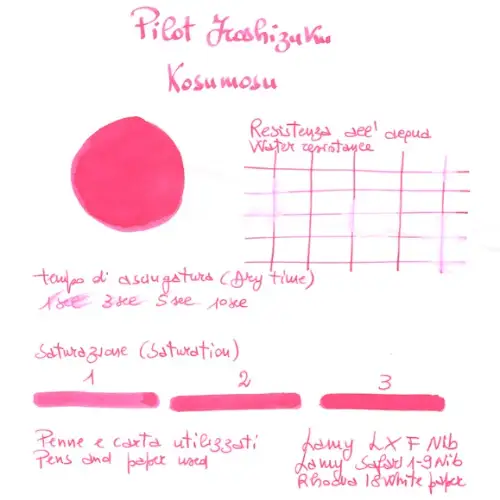 Pilot Iroshizuku
Kosumosu
Resistenza all' acqua
Water resistance
tempo di asciugatura (Dry time)
1 sec 3 sec 5 sec 10 sec
Saturazione (Saturation)
1 2 3
Penne e carta utilizzati
Pens and paper used
Lamy LX F Nib
Lamy Safari 1-9 Nib
Rhodia 18 White paper